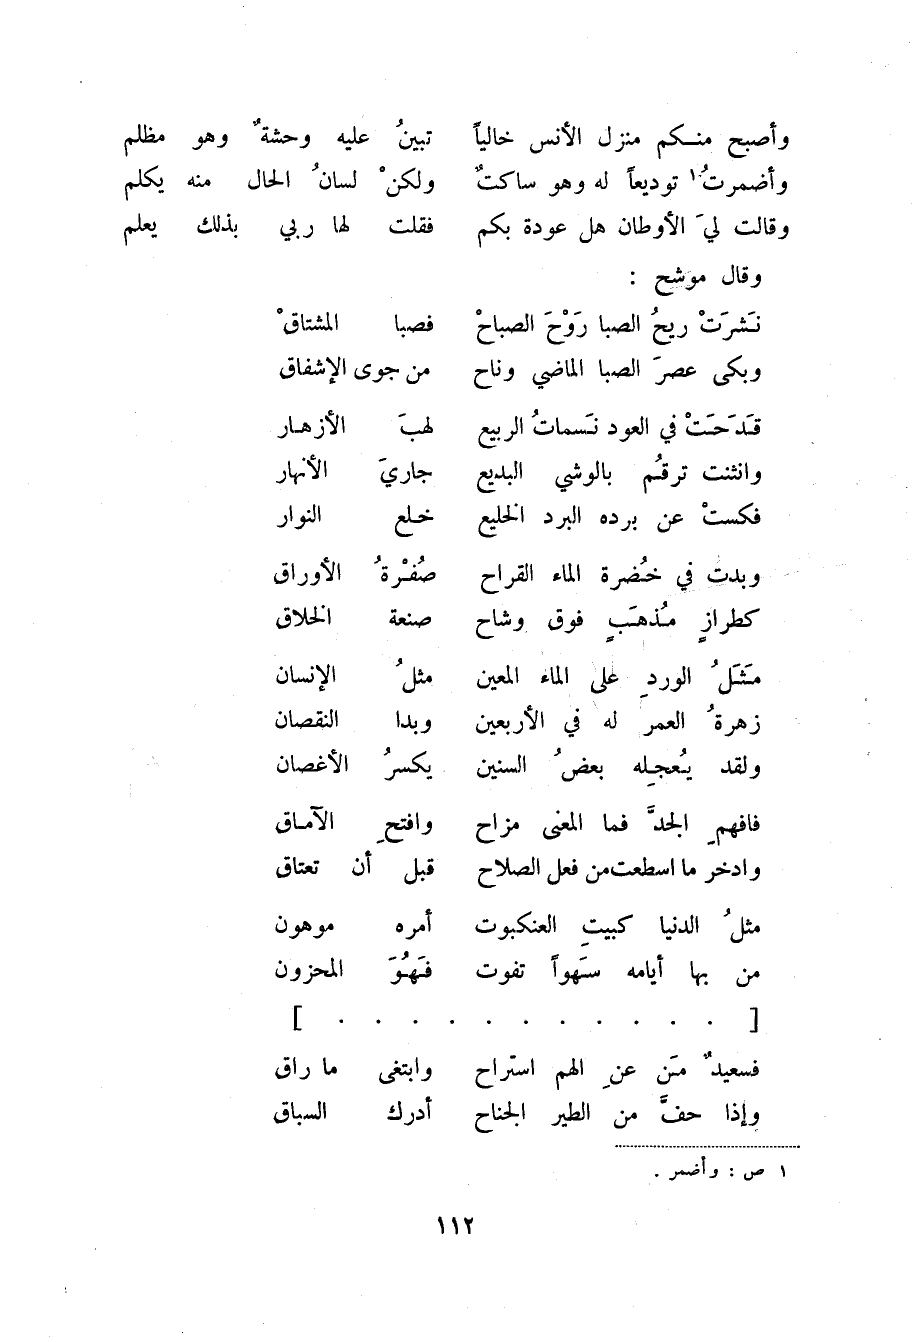 وأصبح منكم منزل الأنس خالياً تبينُ عليه وحشةٌ وهو مظلم
وأضمرتُ١ توديعاً له وهو ساكتٌ ولكنْ لسانُ الحال منه يكلم
وقالت ليَ الأوطان هل عودة بكم فقلت لها ربي بذلك يعلم
وقال موشح :
نَشرَتْ ريحُ الصبا رَوْحَ الصباحْ فصبا المشتاقْ
وبكى عصرَ الصبا الماضي وناح من جوى الإشفاق
قَدَحَتْ في العود نَسماتُ الربيع لهبَ الأزهار
وانثنت ترقُم بالوشي البديع جاريَ الأنهار
فكستْ عن برده البرد الخليع خلع النوار
وبدت في خُضرة الماء القراح صُفْرةُ الأوراق
كطرازٍ مُذهَبٍ فوق وشاح صنعة الخلاق
مَثَلُ الوردِ على الماء المعين مثلُ الإنسان
زهرةُ العمر له في الأربعين وبدا النقصان
ولقد يُعجِله بعضُ السنين يكسرُ الأغصان
فافهمِ الجدَّ فما المعنى مزاح وافتحِ الآماق
وادخر ما اسطعت من فعل الصلاح قبل أن تعتاق
مثلُ الدنيا كبيتِ العنكبوت أمره موهون
من بها أيامه سَهواً تفوت فَهُوَ المحزون
[ . . . . . . . . . . . ]
فسعيدٌ مَن عنِ الهم استراح وابتغى ما راق
وإذا حفَّ من الطير الجناح أدرك السباق
١ ص : وأضمر .
١١٢